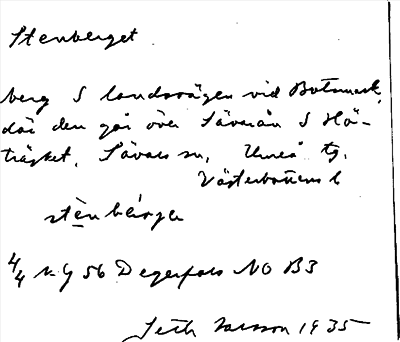 Stenberget
berg S landsvägen vid Botsmark,
där den går över Sävarån S Hö-
träsket, Sävars sn, Umeå tg.
Västerbottens l
stènbä́rgə
4/4 N. G 56 Degerfors NO B3
Seth Larsson 1935